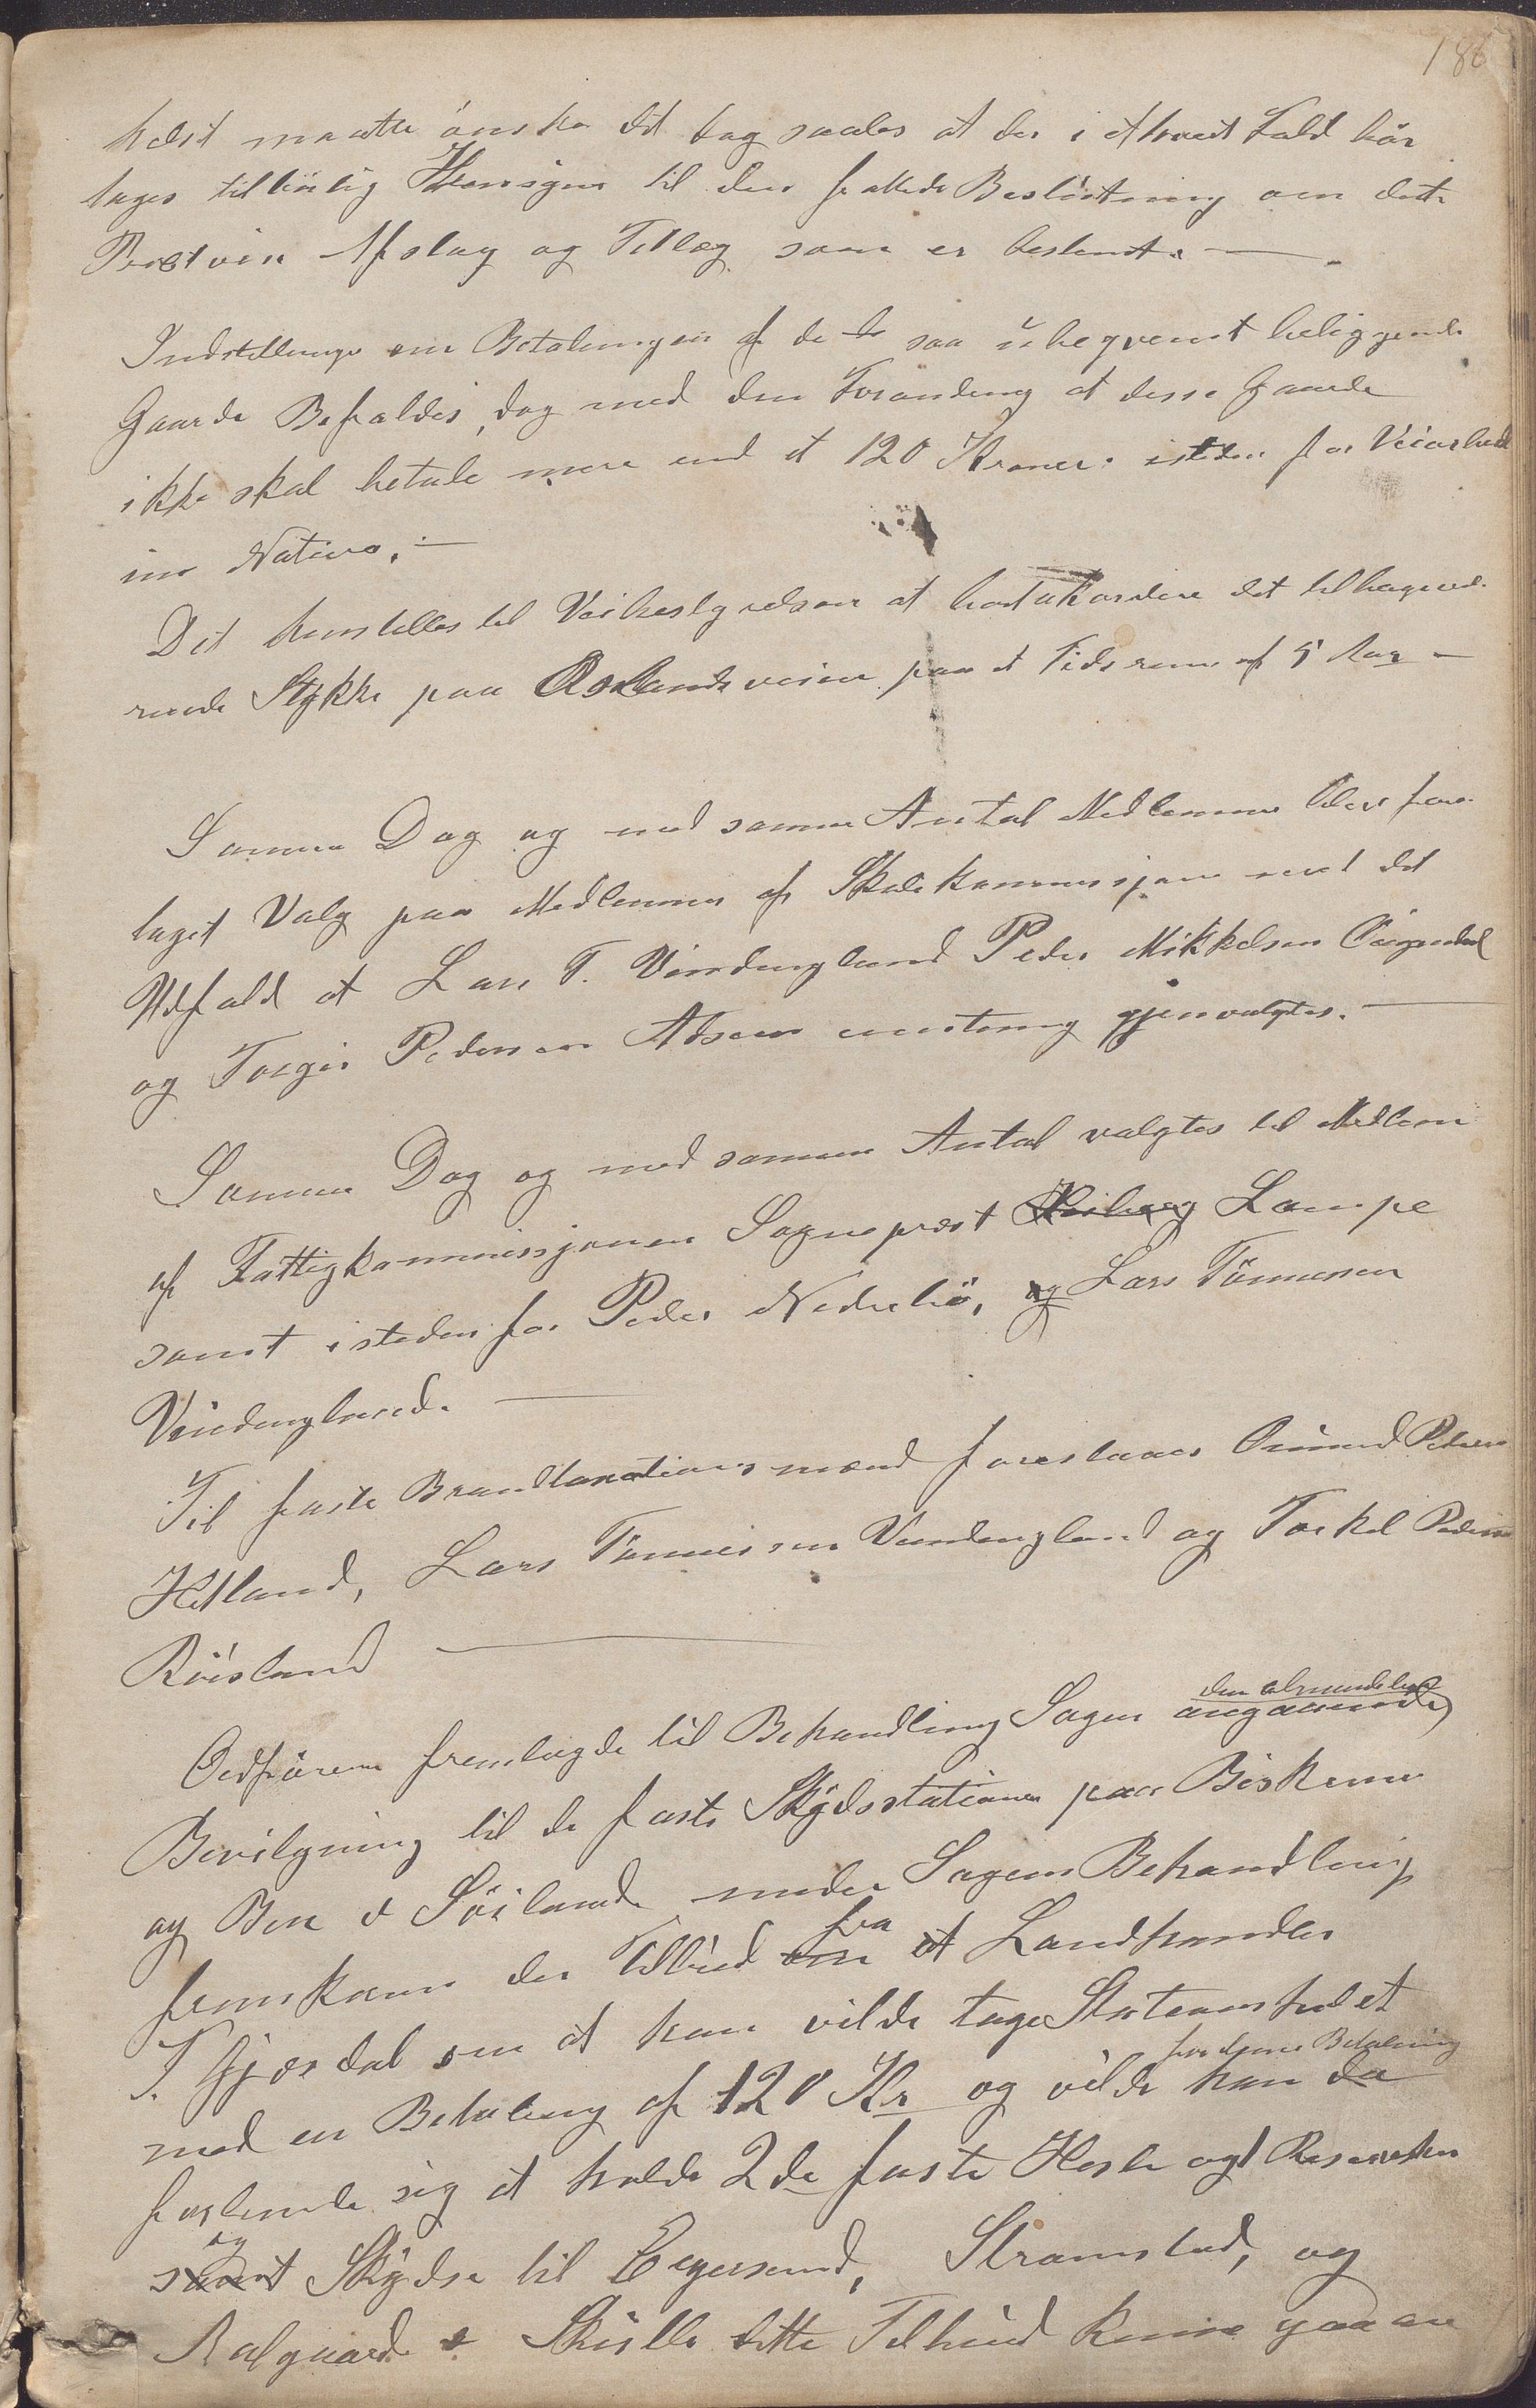 186
helst maatte önske det dog saales at der i ethvert Fald bör
tages tilbörlig Hensyn til den fattede Beslutning om dette
Afslag og Tillæg som er bestemt. —
Indstillinge om Betalingen af de saa ubeqvemt beliggende
Gaarde Bifaldes, dog med den Forandring at disse Gaarde
ikke skal betale mere end et 120 Kroner istedenfor Veiarbeide
in Natura. —
Det henstilles til Veibestyrelsen at bortakordere det tilbageve-
rende Stykke paa Øslandsveien paa et Tidsrum af 5 Aar —
Samme Dag og med samme Antal Medlemmer blev fore-
taget Valg paa Medlemmer af Skolekommissjonen med det
Udfald at Lars T. Vindingland Peder Mikkelsen
og Torger Pedersen enstemig gjenvalgtes. —
Samme Dag og med samme Antal valgtes til Medlem
af Fattigkommissjonen Sogneprest Lampe
samt istedenfor Peder Nedrebö, og Lars Tönnesen
Vindingland. —
Til faste Brandtaxationsmænd foreslaaes Omund Pedersen
Hetland, Lars Tönnessen Vindingland og Torkel Pedersen
Röisland —
Ordföreren fremlagde til Behandling Sagen angaaende den almindelige
Bevilgning til de faste Skydsstationer paa Birkemo
og Bue & Söiland under Sagens Behandling
fremkom der Tilbud fra Landhandler
T. Gjesdal om at han vilde tage Stationsholdet
med en Betaling af 120 Kr og vilde han for denne Betaling da
forbinde sig at holde 2de faste Heste og 1 Reservehest
og Skydse til Egersund, Stromstad, og
Aalgaard & Skulle dette Tilbud kunne gaa an